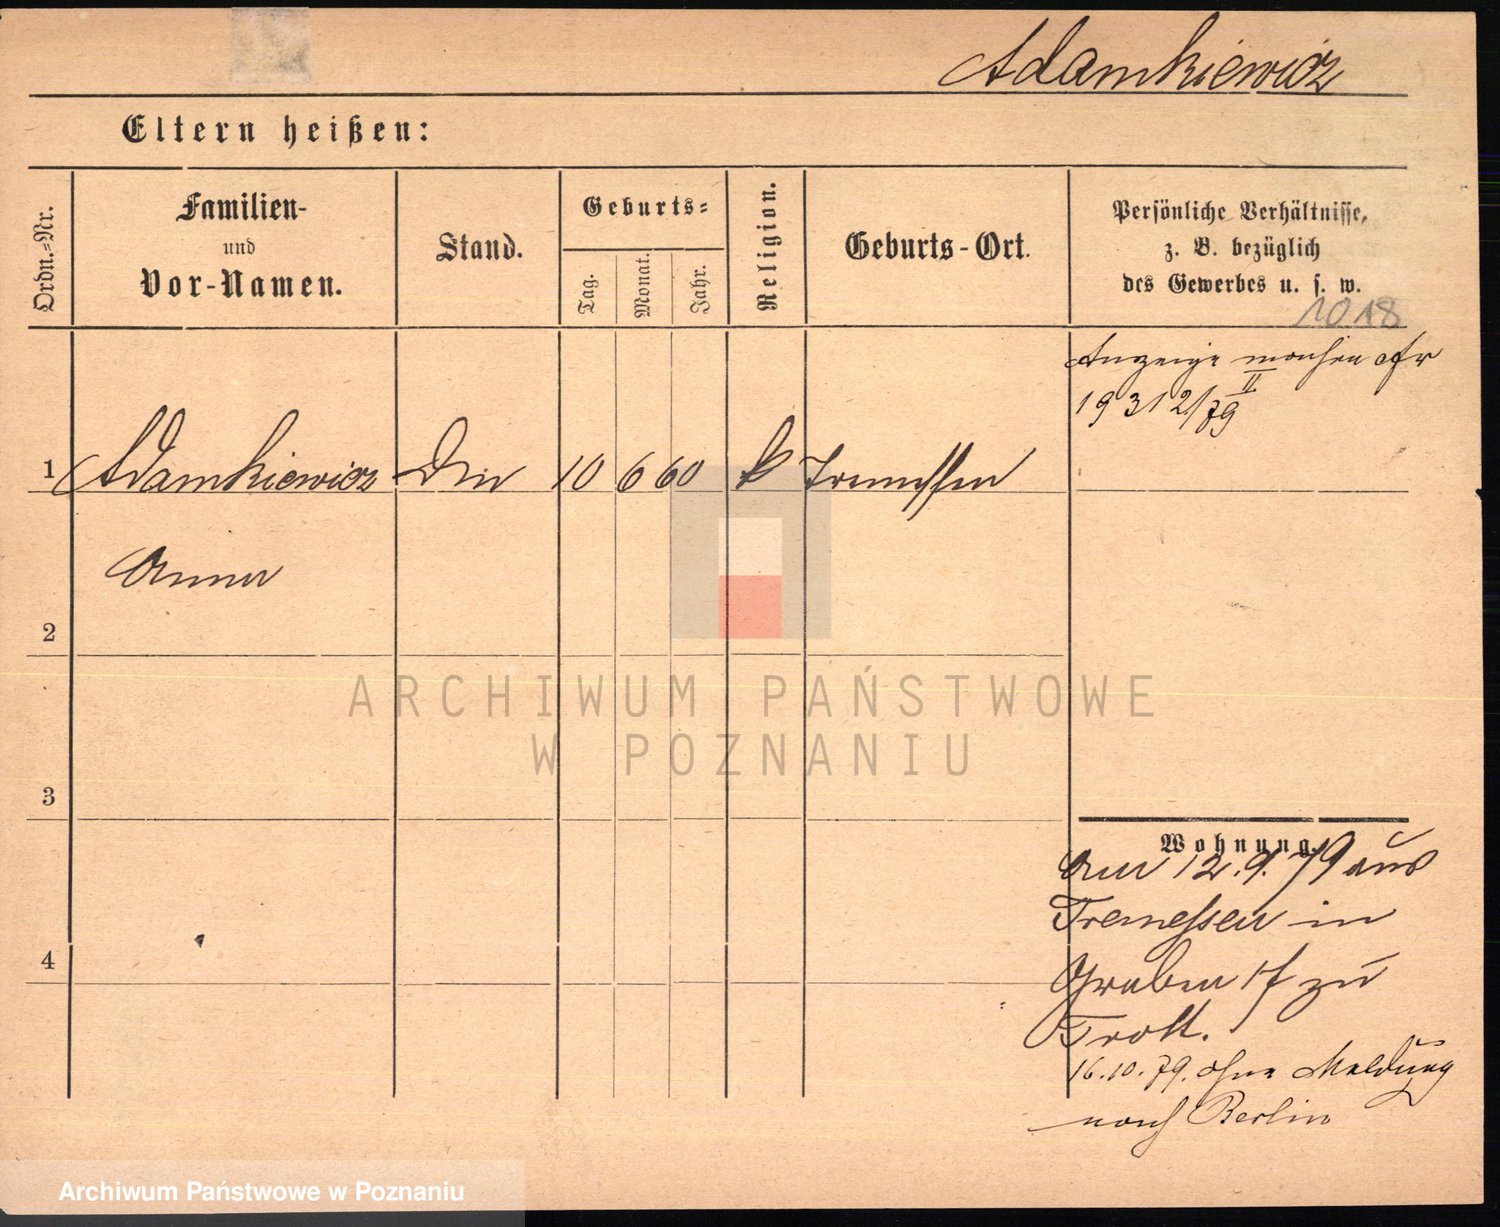 Adamkiewicz
Eltern heißen:
Ordn.=Nr.
Familien-
und
Vor-Namen.
Stand.
Geburts=
Tag.
Monat.
Jahr.
Religion.
Geburts-Ort.
Persönliche Verhältnisse,
z. B. bezüglich
des Gewerbes u. s. w.
1018
Anzeige machen
II
19312/79
1 Adamkiewicz 10 6 60 k Tremessen
Anna
2
3
4
Wohnung.
Am 12.9.79 aus
Tremessen in
Graben 17 zu
Trott.
16.10.79. ohne Meldung
nach Berlin
ARCHIWUM PAŃSTWOWE
W POZNANIU
Archiwum Państwowe w Poznaniu